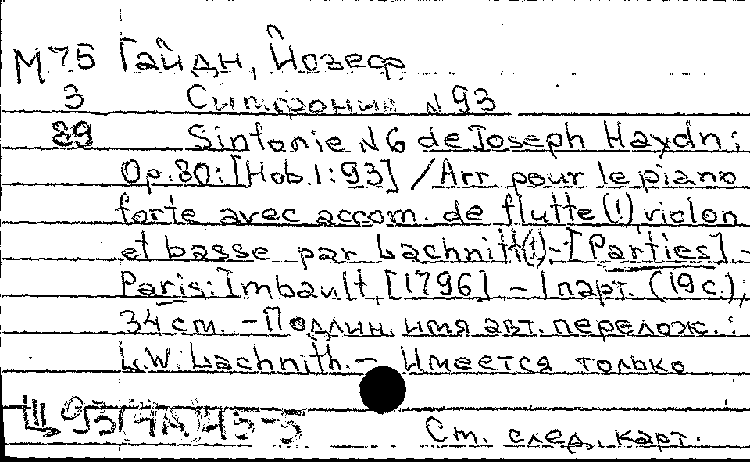 М75 Гайдн, Йозеф
3 Симфония N93
89 Sinfonie N6 de Joseph Haydn;
Op.80: [Hob.I:93] / Arr pour le piano
forte avec accom. de flutte (!) violon
et basse par Lachnith(!) - [Parties]. -
Paris: Imbault, [1796] - 1 парт. (19 с.);
34 см. - Подлин. имя авт. перелож.:
L.W. Lachnith. - Имеется только
Ш 93(4А)45-5
См. след. карт.